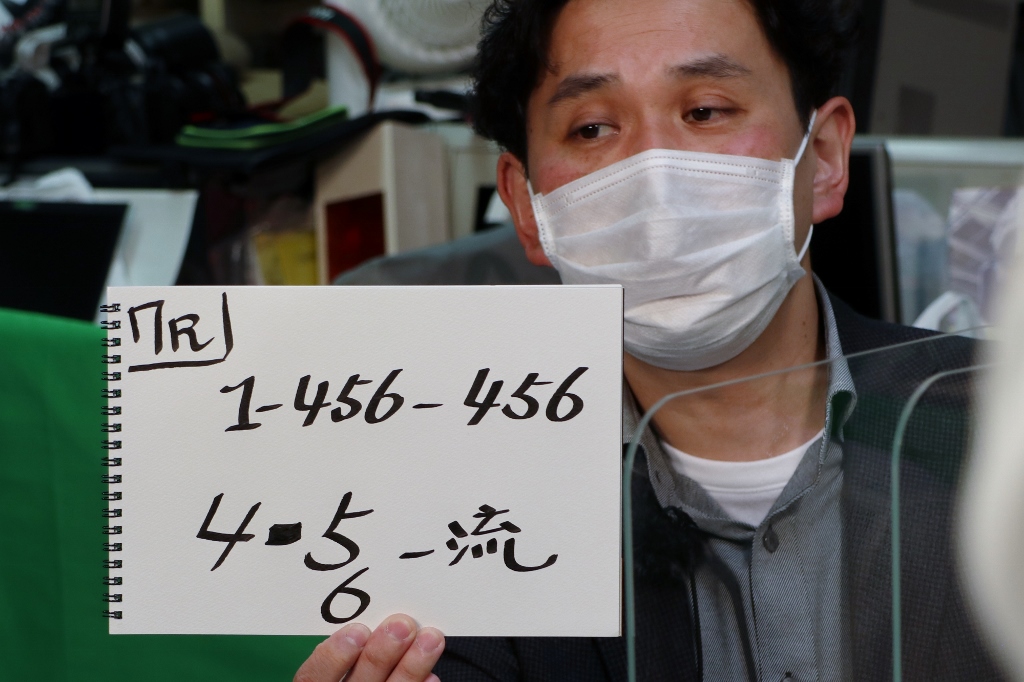 7R
1-456-456
4=5-流
6